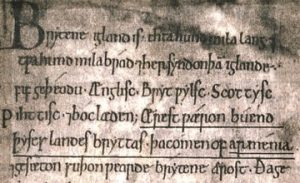 Brytene igland is ehta hund mila lang ⁊
tpa hund mila brad ⁊ her syndon þa iglande
fif geþeodu · Ænglisc · Brytpylsc · Scottysc
Pihttisc · ⁊ bocleden · Ærest pæron bugend
þyses landes bryttas · þa comon of armenia
⁊ gesæton suþon pearde brytene ærost · Ða ge